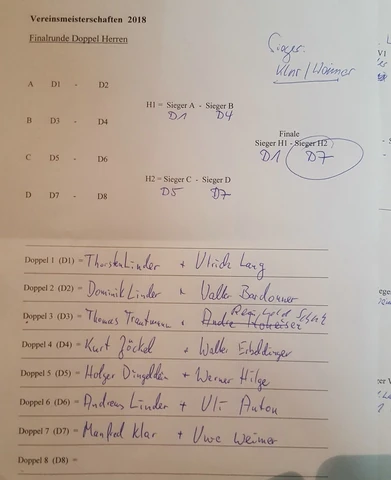 Vereinsmeisterschaften 2018
Finalrunde Doppel Herren
Sieger:
Klar / Weimer
A D1 - D2
H1 = Sieger A - Sieger B
D1 D4
B D3 - D4
Finale
Sieger H1 - Sieger H2
D1 D7
C D5 - D6
H2 = Sieger C - Sieger D
D5 D7
D D7 - D8
Doppel 1 (D1) = Thorsten Linder + Ulrich Lang
Doppel 2 (D2) = Dominik Linder + Volker
Doppel 3 (D3) = Thomas Trautmann + Andre
Doppel 4 (D4) = Kurt Jöckel + Walter
Doppel 5 (D5) = Holger + Werner Hilge
Doppel 6 (D6) = Andreas Linder + Uli Anton
Doppel 7 (D7) = Manfred Klar + Uwe Weimer
Doppel 8 (D8) =